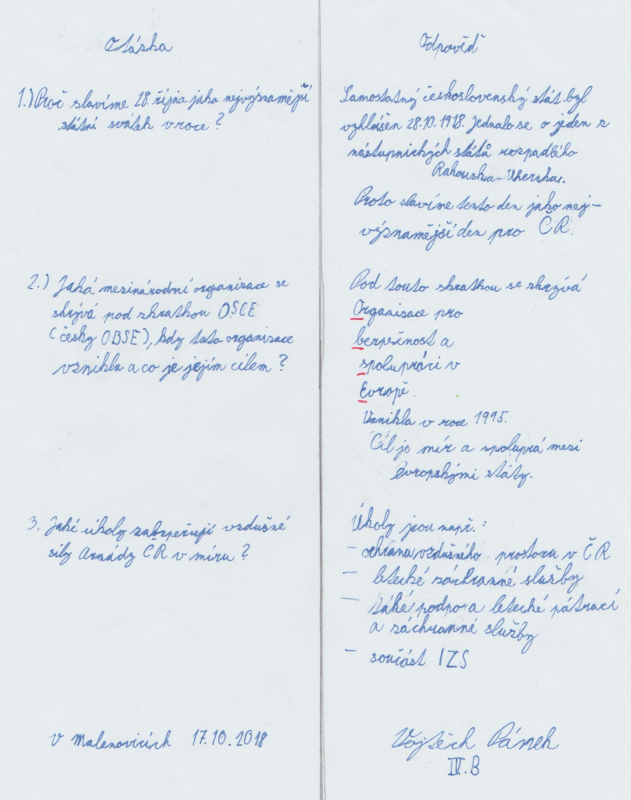 Otázka
1.) Proč slavíme 28. října jako nejvýznamější
státní svátek v roce?
2.) Jaká mezinárodní organizace se
skrývá pod zkratkou OSCE
(česky OBSE), kdy tato organizace
vznikla a co je jejím cílem?
3. Jaké úkoly zabezpečují vzdušné
síly Armády ČR v míru?
v Malenovicích 17.10.2018
Odpověď
Samostatný československý stát byl
vyhlášen 28.10.1918. Jednalo se o jeden z
nástupnických států rozpadlého
Rakouska-Uherska.
Proto slavíme tento den jako nej-
významější den pro ČR.
Pod touto zkratkou se skrývá
Organizace pro
bezpečnost a
spolupráci v
Evropě.
Vznikla v roce 1995.
Cíl je mír a spoluprá mezi
évropskými státy.
Úkoly jsou např.:
- ochrana vzdušného prostoru v ČR
- letecké záchranné služby
- také podpora letecké pátrací
a záchranné služby
- součást IZS
Vojtěch Pánek
IV.B